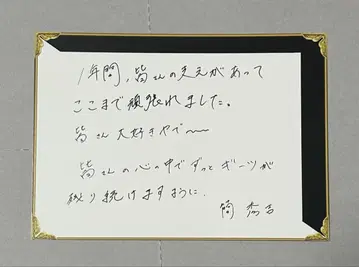 1年間、皆さんの支えがあって
ここまで頑張れました。
皆さん大好きやで〜〜
皆さんの心の中でずっとギーツが
残り続けますように.
簡 秀吉